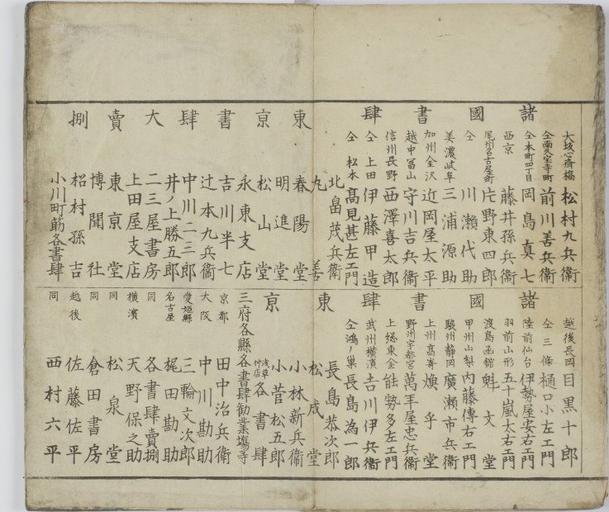 諸國書肆
大坂心斎橋 松村九兵衞
仝南久宝寺町 前川善兵衞
仝本町四丁目 岡島真七
西京 藤井孫兵衞
尾州名古屋 片野東四郎
仝 川瀬代助
美濃岐阜 三浦源助
加州金沢 近岡屋太平
越中冨山 守川吉兵衞
信州長野 西澤喜太郎
仝上田 伊藤甲造
仝松本 髙見甚左エ門
東京書肆大賣捌
北畠茂兵衞
丸善
春陽堂
明進堂
松山堂
永東支店
吉川半七
辻本九兵衞
中川二三郎
井ノ上勝五郎
二三屋書房
上田屋支店
東京堂
博聞社
稻村孫吉
小川町筋各書肆
諸國書肆
越後長岡 目黒十郎
仝三條 樋口小左エ門
陸前仙台 伊勢屋安右エ門
羽前山形 五十嵐太右エ門
渡島函館 魁文堂
甲州山梨 内藤傳右エ門
駿州静岡 廣瀬市兵衞
上州高﨑 煥乎堂
野州宇都宮 萬手屋忠兵衞
上総東金 能勢多左エ門
武州横濱 吉川伊兵衞
仝鴻ノ巣 長島為一郎
東京
長島恭次郎
松成堂
小林新兵衞
小菅松五郎
浅草仲店 各書肆
三府各縣各書肆勧業塲等
京都 田中治兵衞
大阪 中川勘助
愛媛縣 三輪文次郎
名古屋 梶田勘助
同 各書肆賣捌
横濱 天野保之助
同 松泉堂
同 倉田書房
越後 佐藤佐平
同 西村六平